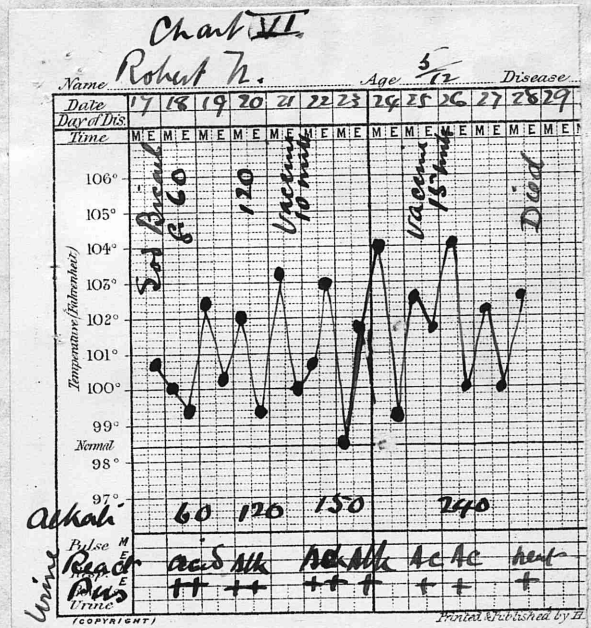 Chart VI.
Name Robert N. Age 5/12 Disease
Date 17 18 19 20 21 22 23 24 25 26 27 28 29
Day of Dis.
Time M E M E M E M E M E M E M E M E M E M E M E M E M E
Sod Bicarb
gr 60
120
Vaccine
10 mill
Vaccine
15 mill
Died
Temperature (Fahrenheit)
106°
105°
104°
103°
102°
101°
100°
99°
Normal
98°
97°
Alkali 60 120 150 240
Pulse M
E
Urine
React acid Alk Alk Ac Ac neut
Pus ++ ++ ++ + + + +
Urine
(COPYRIGHT) Printed & Published by H.